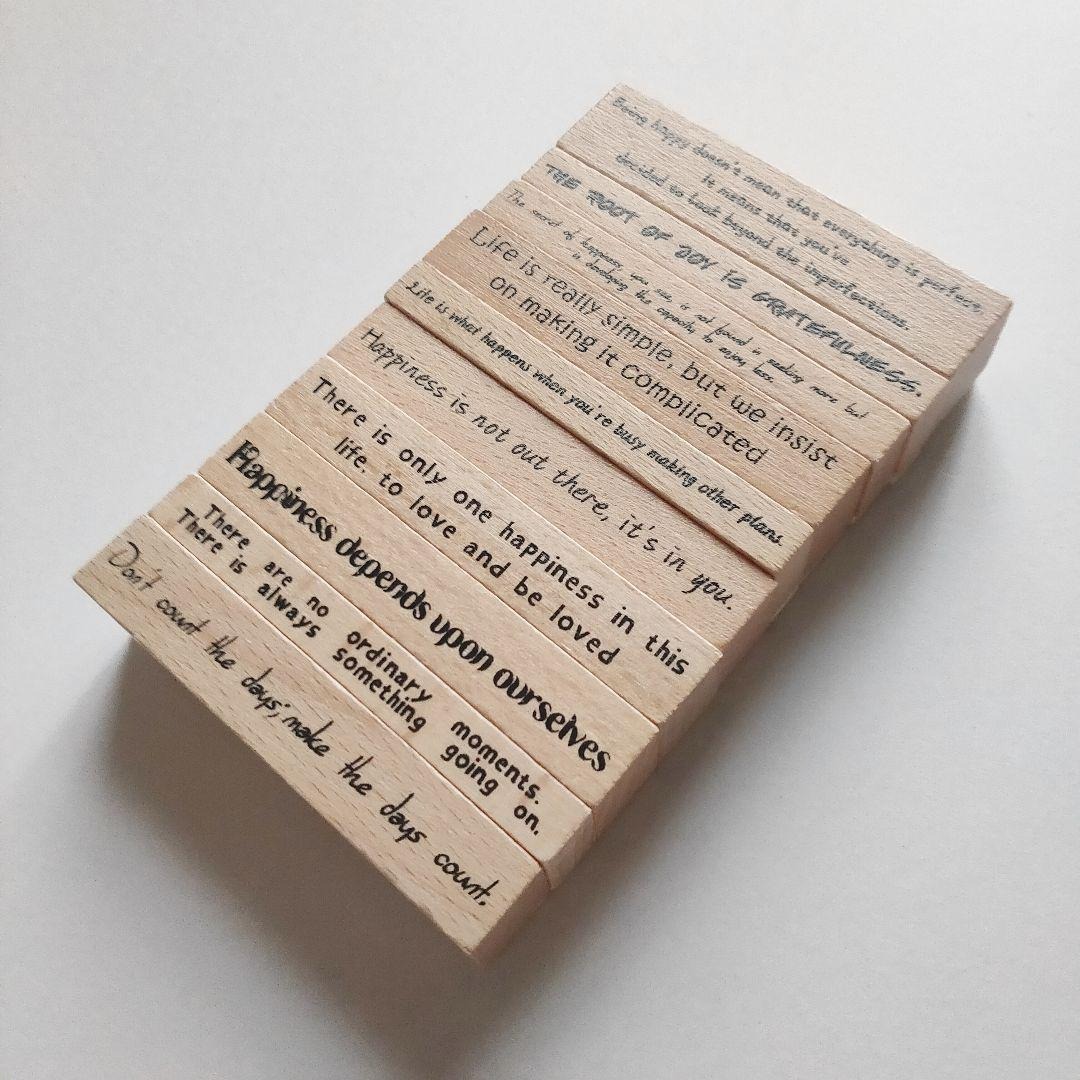 Being happy doesn't mean that everything is perfect.
It means that you've
decided to look beyond the imperfections.
THE ROOT OF JOY IS GRATEFULNESS.
The secret of happiness, you see, is not found in seeking more, but
in developing the capacity to enjoy less.
Life is really simple, but we insist
on making it complicated
Life is what happens when you're busy making other plans.
Happiness is not out there, it's in you.
There is only one happiness in this
life, to love and be loved
Happiness depends upon ourselves
There are no ordinary moments.
There is always something going on.
Don't count the days; make the days count.